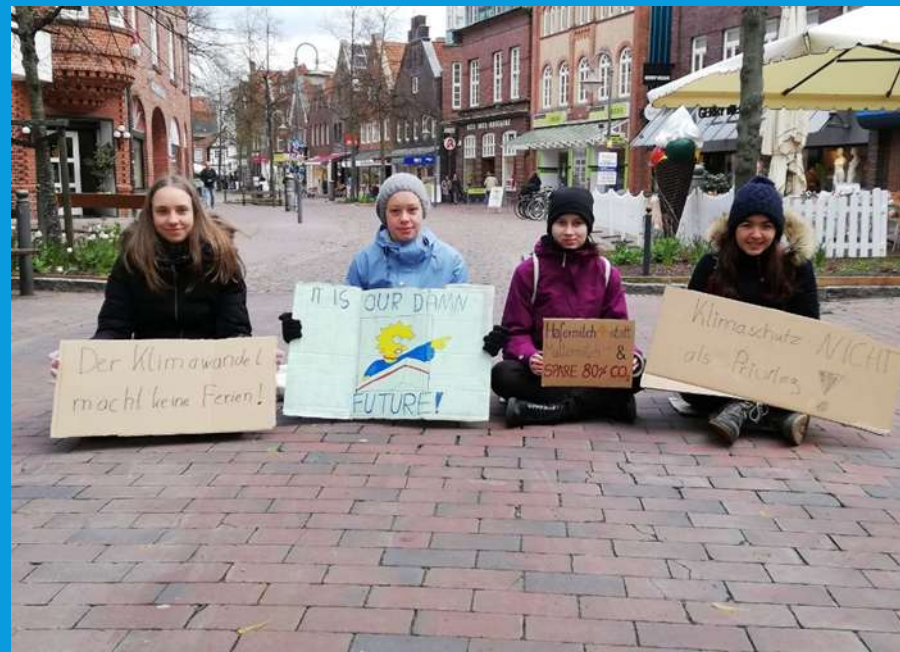 Der Klimawandel
macht keine Ferien!
IT IS OUR DAMN
FUTURE!
Hafermilch statt
&
SPARE 80% CO₂
Klimaschutz NICHT
als Privileg